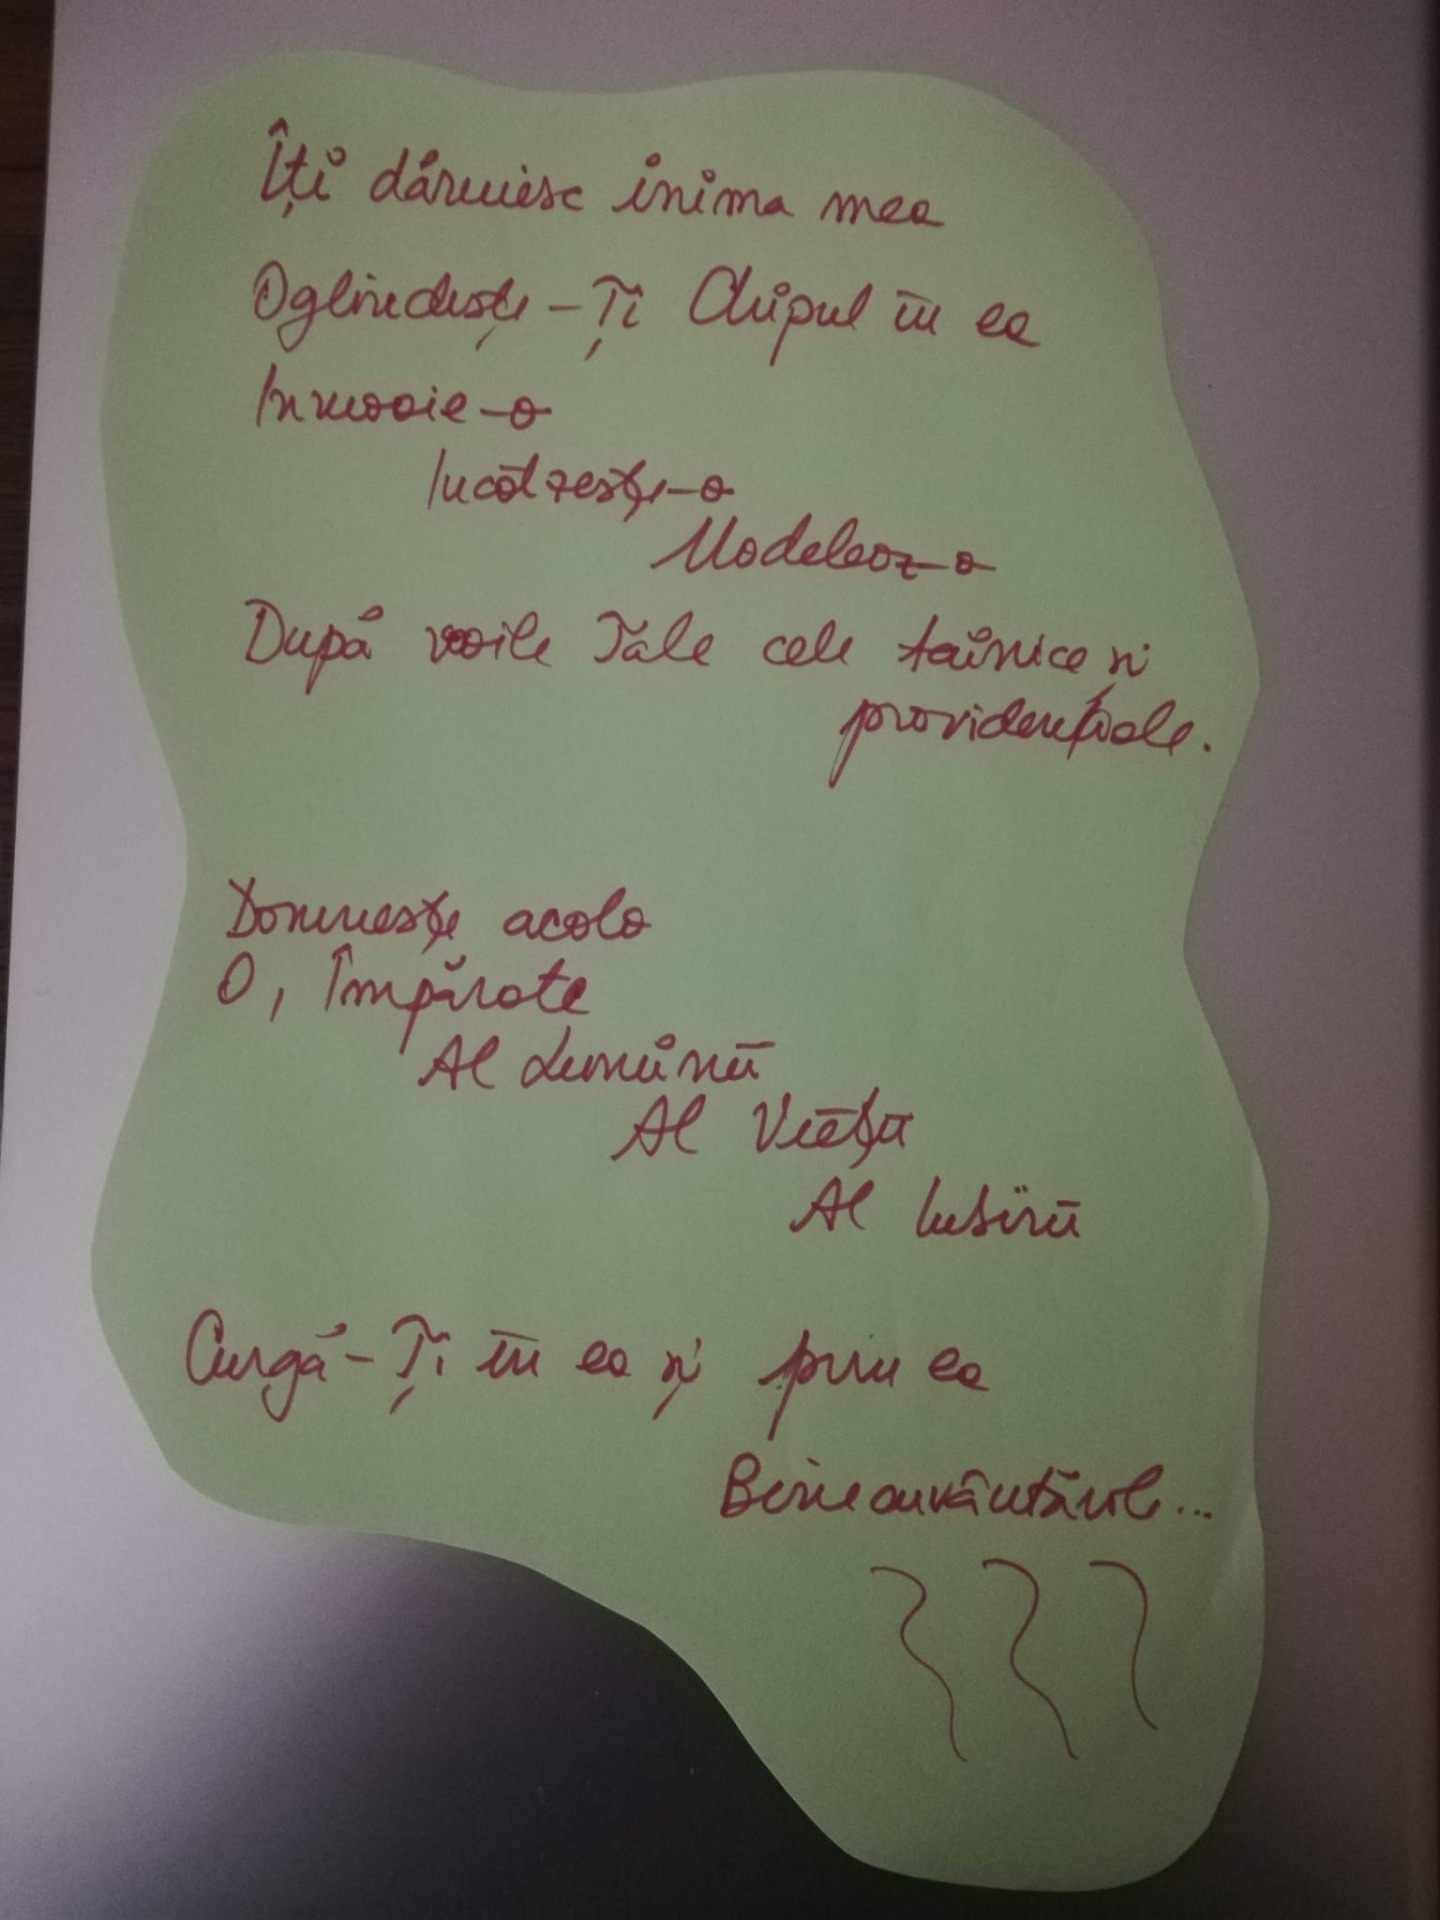 Îți dăruiesc inima mea
Oglindește-Ți Chipul în ea
Inmoaie-o
Incălzește-o
Modeleaz-o
După voile Tale cele tainice și
providențiale.
Domnește acolo
O, Împărate
Al Luminii
Al Vieții
Al Iubirii
Curgă-Ți în ea și prin ea
Binecuvântările...